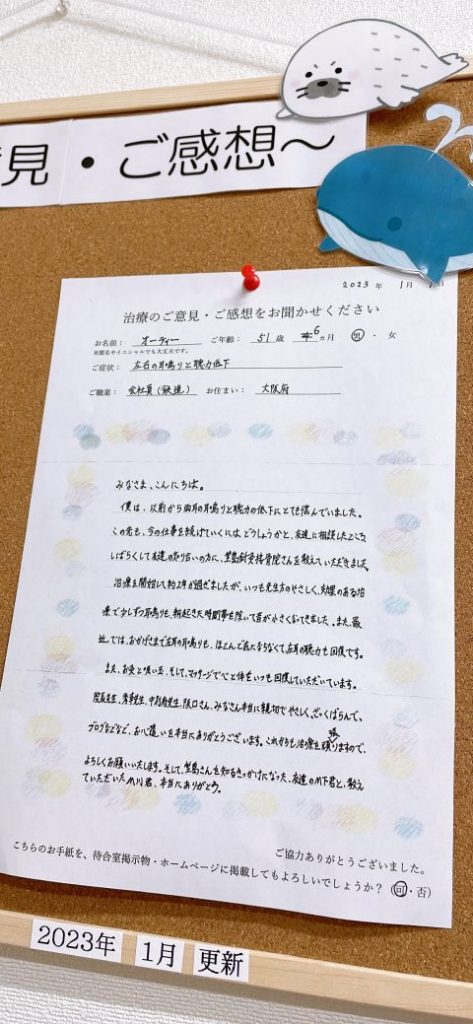 見・ご感想～
2023 年 1月 日
治療のご意見・ご感想をお聞かせください
お名前： オーティー ご年齢： 51 歳 6ヵ月 男・女
※匿名やイニシャルでも大丈夫です。
ご症状： 左右の耳鳴りと聴力低下
ご職業： 会社員(鉄道) お住まい： 大阪府
みなさま、こんにちは。
僕は、以前から両耳の耳鳴りと聴力の低下にとても悩んでいました。
この先も、今の仕事を続けていくには、どうしょうかと、友達に相談したところ
しばらくして友達の知り合いの方に、堂島針灸接骨院さんを教えていただきました。
治療を開始して約2年が過ぎましたが、いつも先生方のやさしく、効果のある治
療で少しずつ耳鳴りも、朝起きた時間帯を除いて音が小さくなってきました。また、最
近では、おかげさまで左耳の耳鳴りも、ほとんど気にならなくて、左耳の聴力も回復です。
また、お灸と吸い玉、そして、マッサージで心と体をいつも回復していただいています。
院長先生、先生、先生、阪口さん、みなさん本当に親切でやさしく、ざっくばらんで、
ブログなどなど、お心遣いを本当にありがとうございます。これからも治療を頑張りますので、
よろしくお願いいたします。そして、堂島さんを知るきっかけになった、友達のM下君と、教え
ていただいたM川君、本当にありがとう。
ご協力ありがとうございました。
こちらのお手紙を、待合室掲示物・ホームページに掲載してもよろしいでしょうか？（可・否）
2023年 1月 更新